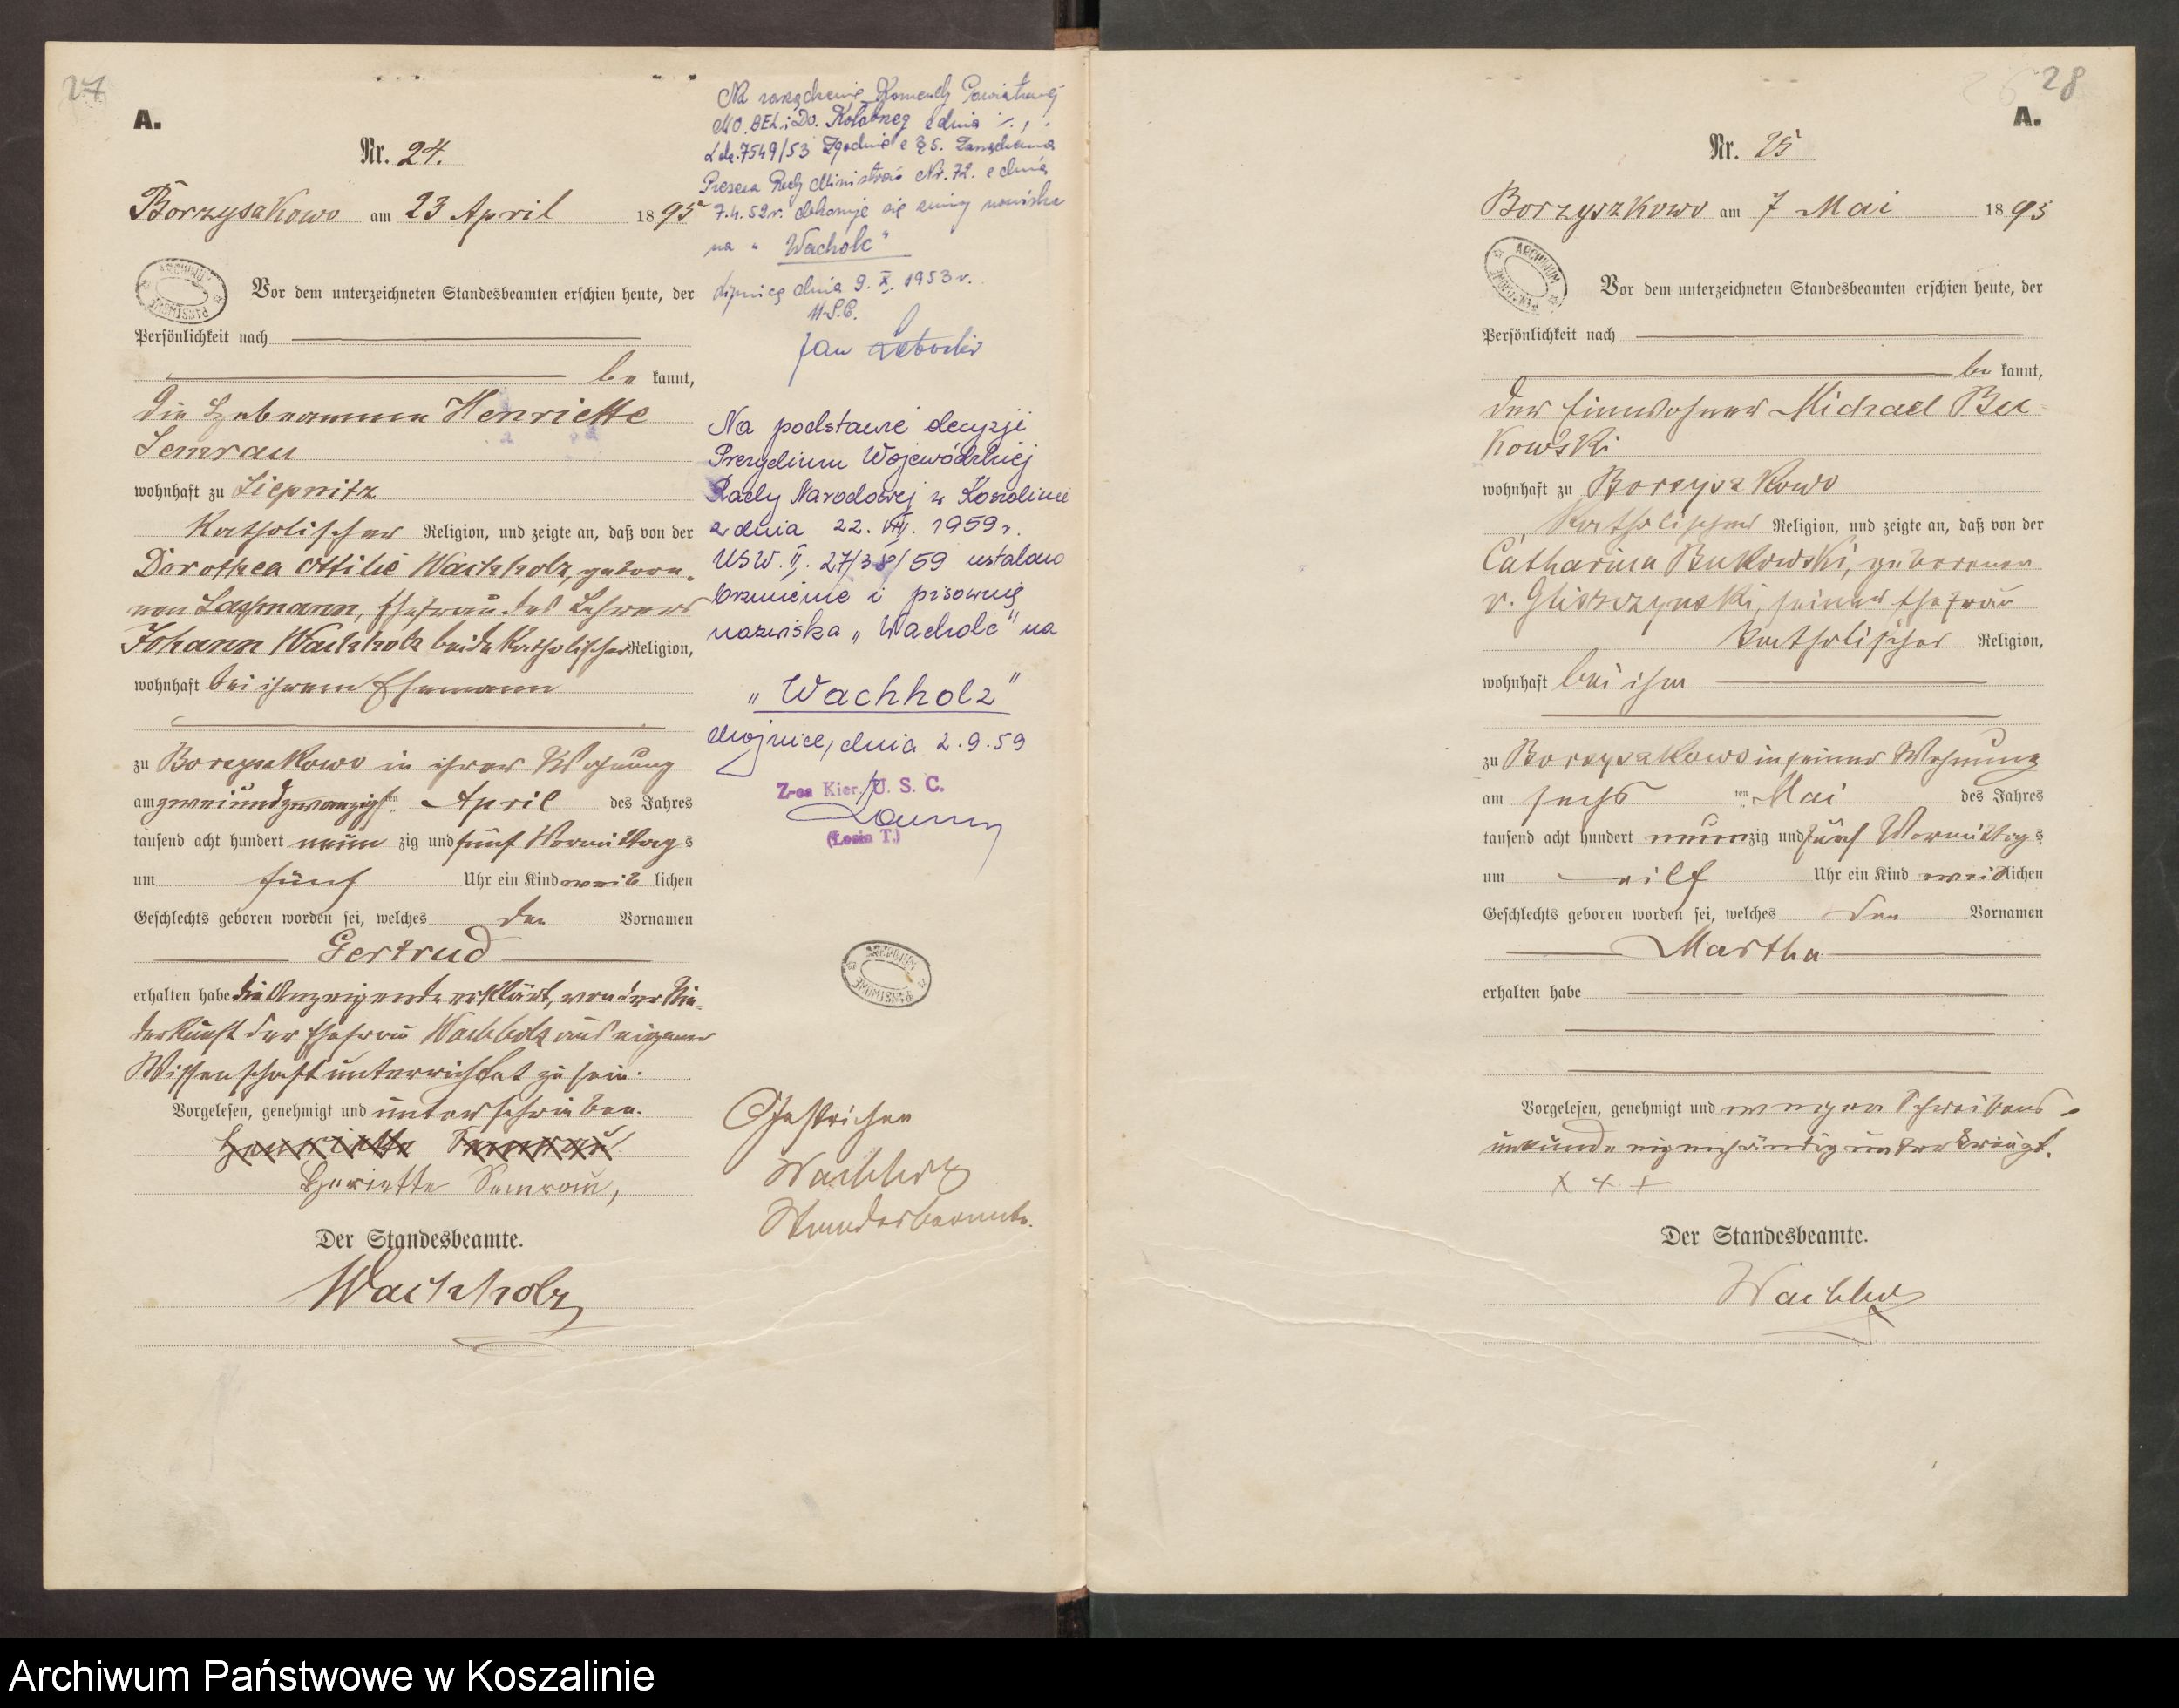 27
A.
Nr. 24.
Borzyszkowo am 23 April 1895
ARCHIWUM PAŃSTWOWE
Vor dem unterzeichneten Standesbeamten erschien heute, der
Persönlichkeit nach
be kannt,
die Hebeamme Henriette
Semrau
wohnhaft zu Liepnitz
katholischer Religion, und zeigte an, daß von der
Dorothea Ottilie Wachholz, gebore-
nen Lassmann, Ehefrau des Lehrers
Johann Wachholz beide katholischer Religion,
wohnhaft bei ihrem Ehemann
zu Borzyszkowo in ihrer Wohnung
am zweiundzwanzigsten April des Jahres
tausend acht hundert neun zig und fünf Vormittags
um fünf Uhr ein Kind weib lichen
Geschlechts geboren worden sei, welches den Vornamen
Gertrud
erhalten habe die Anzeigende erklärt, von der Nie-
derkunft der Ehefrau Wachholz aus eigener
Wissenschaft unterrichtet zu sein.
Vorgelesen, genehmigt und unterschrieben.
Henriette Semrau
Henriette Semrau,
Der Standesbeamte.
Wachholz
Na zarządzenie Komendy Powiatowej
MO. BEL i DO. Kołobrzeg z dnia
L.dz. 7549/53 Zgodnie z § 5. Zarządzenia
Prezesa Rady Ministrów Nr. 72. z dnia
7.4.52 r. dokonuje się zmiany nazwiska
na "Wacholc"
Lipnica dnia 9. X. 1953 r.
U.S.C.
Jan
Na podstawie decyzji
Prezydium Wojewódzkiej
Rady Narodowej w Koszalinie
z dnia 22. VIII. 1959 r.
USW. II. 27/38/59 ustalono
brzmienie i pisownię
nazwiska "Wacholc" na
"Wachholz"
Chojnice, dnia 2.9.59
Z-ca Kier. U. S. C.
(Łosin T.)
ARCHIWUM PAŃSTWOWE
Gestrichen
Wachholz
Standesbeamte.
28
A.
Nr. 25
Borzyszkowo am 7 Mai 1895
ARCHIWUM PAŃSTWOWE
Vor dem unterzeichneten Standesbeamten erschien heute, der
Persönlichkeit nach
be kannt,
der Einwohner Michael Bu
kowski
wohnhaft zu Borzyszkowo
katholischer Religion, und zeigte an, daß von der
Catharina Bukowski, geborenen
v. Gliszczynski, seiner Ehefrau
katholischer Religion,
wohnhaft bei ihm
zu Borzyszkowo in seiner Wohnung
am sechs ten Mai des Jahres
tausend acht hundert neun zig und fünf Vormittags
um eilf Uhr ein Kind weib lichen
Geschlechts geboren worden sei, welches den Vornamen
Martha
erhalten habe
Vorgelesen, genehmigt und wegen Schreibens-
unkunde eigenhändig unterkreuzt.
x x x
Der Standesbeamte.
Wachholz
Archiwum Państwowe w Koszalinie